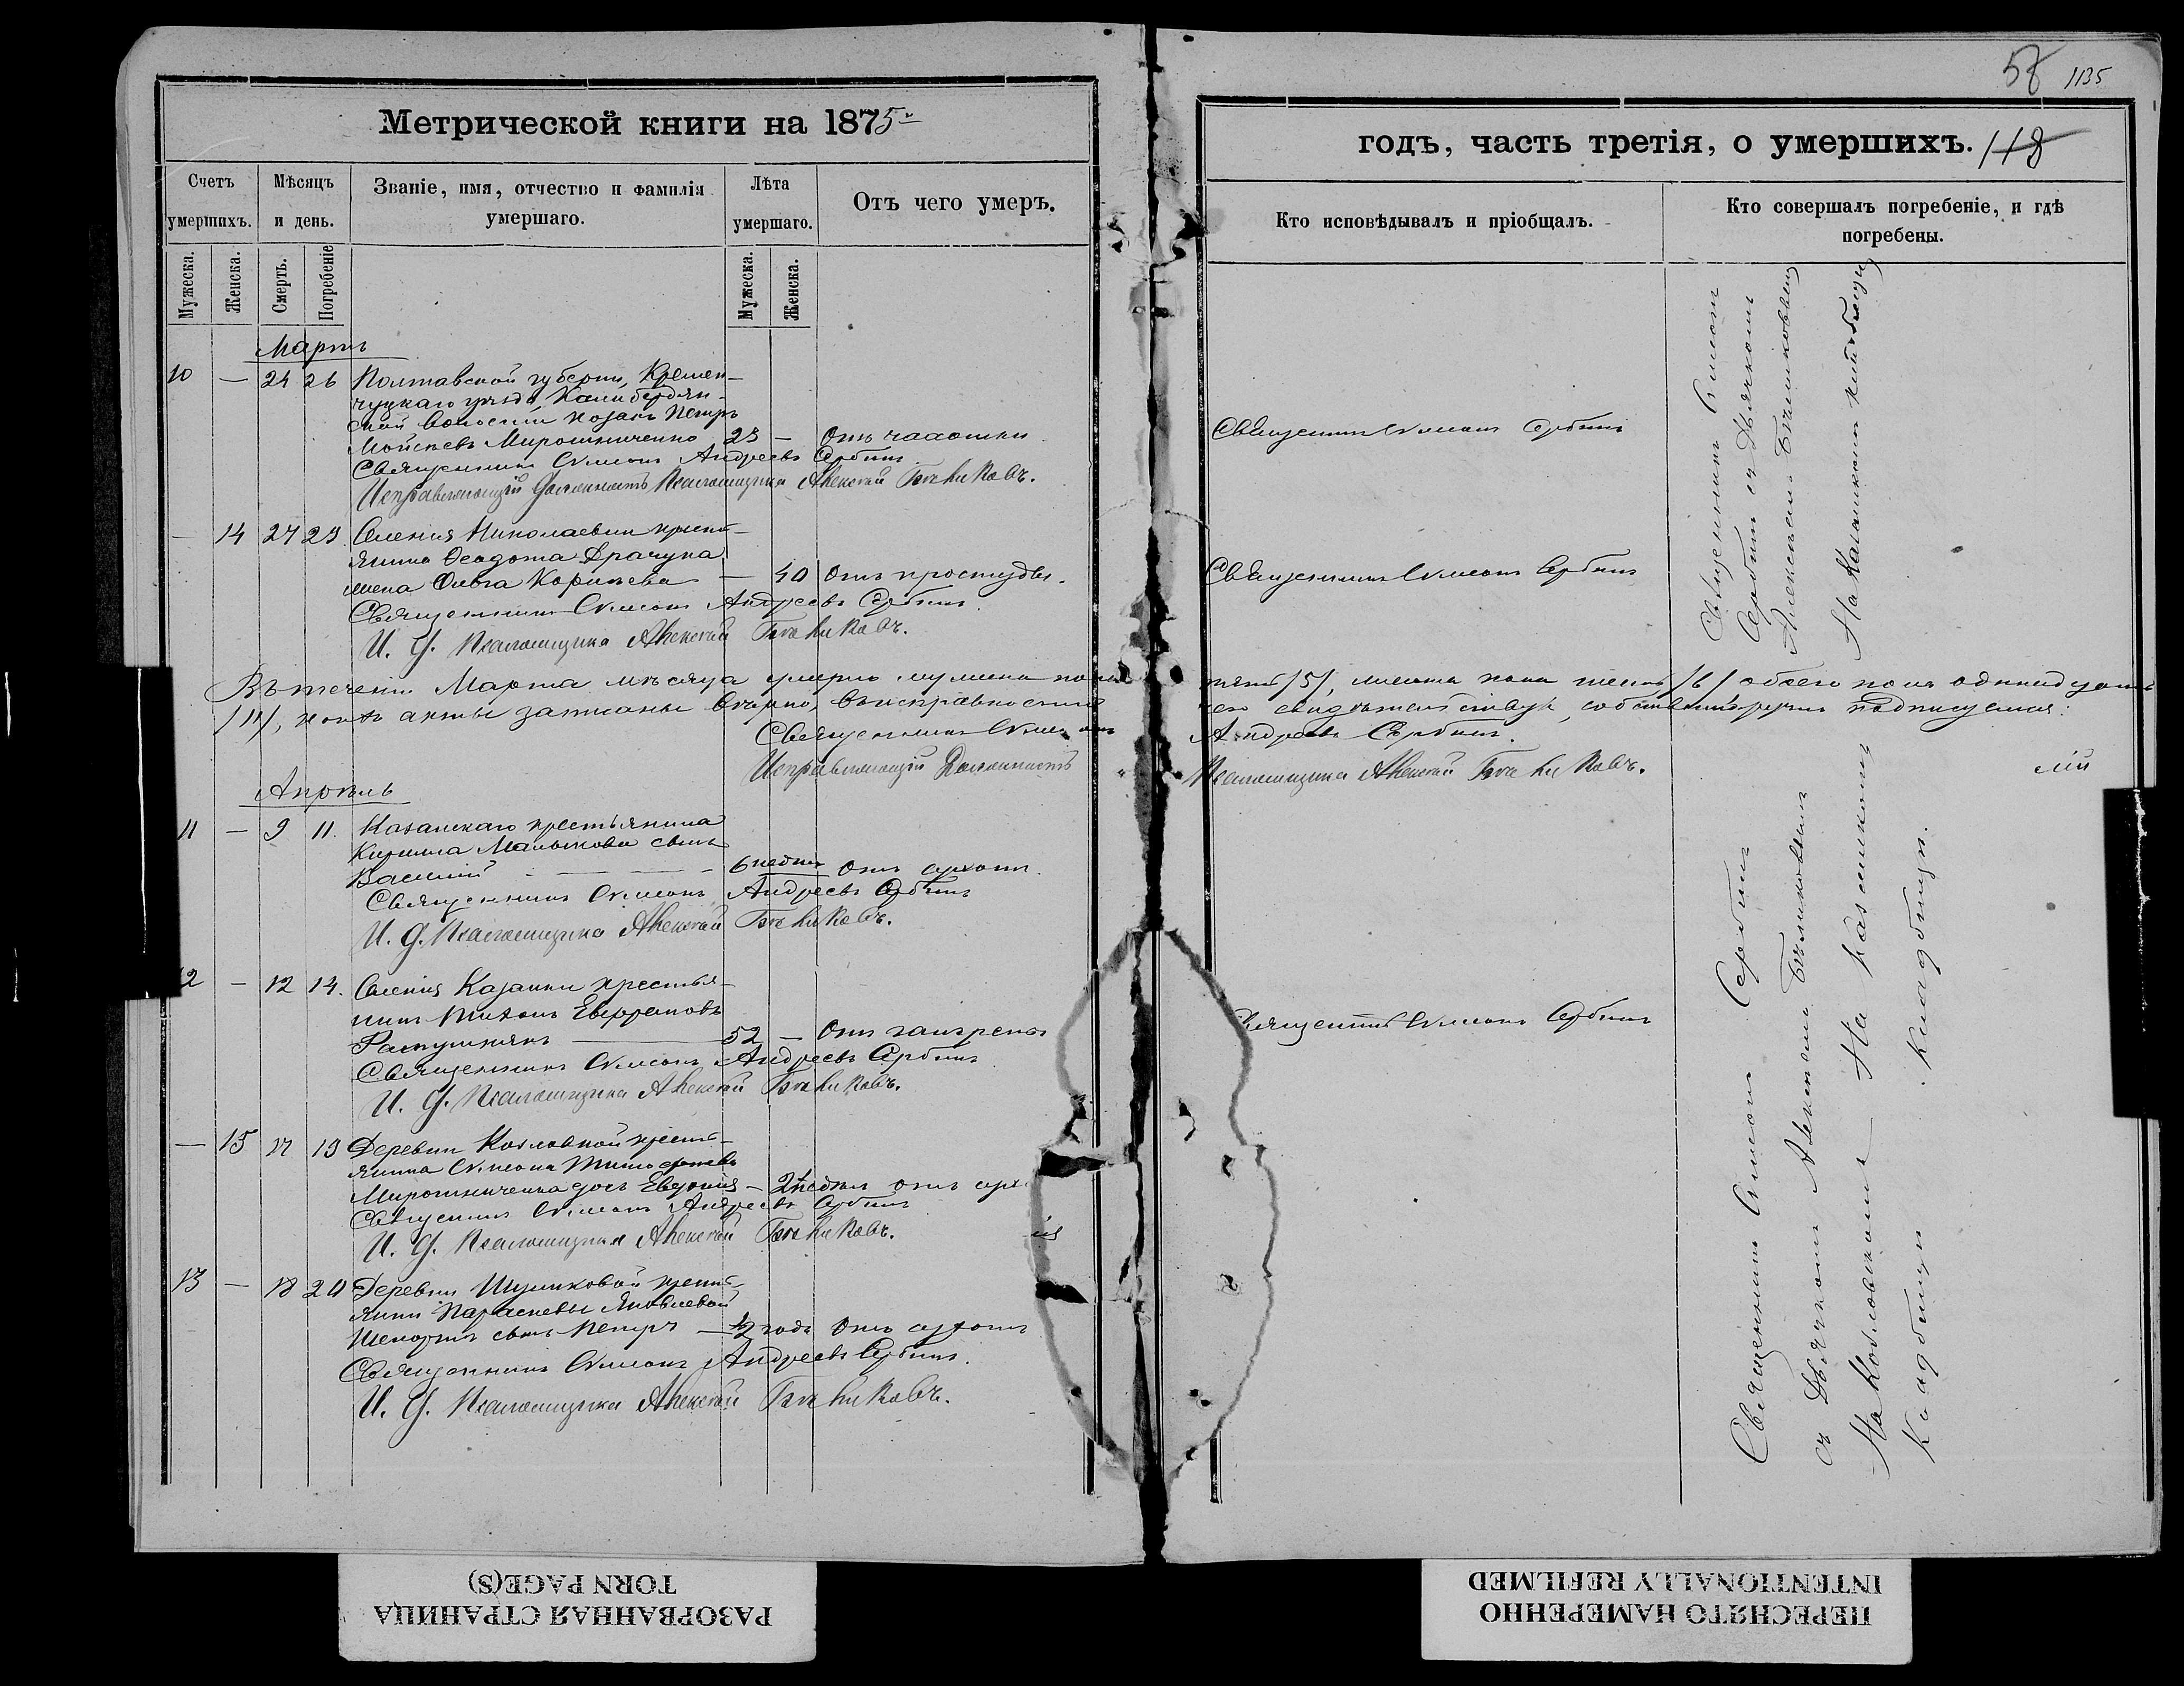 58 1135
Метрической книги на 1875
годъ, часть третія, о умершихъ. 118
Счетъ умершихъ.
Мѣсяцъ и день.
Званіе, имя, отчество и фамилія умершаго.
Лѣта умершаго.
Отъ чего умеръ.
Кто исповѣдывалъ и пріобщалъ.
Кто совершалъ погребеніе, и гдѣ погребены.
Мужеска.
Женска.
Смерть.
Погребеніе
Мужеска.
Женска.
Мартъ
10 — 24 26 Полтавской губерніи, Кремен-
чуцкаго уѣзда,
волости козакъ Петръ
Мойсеевъ Мирошниченко 23 — Отъ чахотки
Священникъ Симеонъ Сербинъ
Священникъ Симеонъ Андреевъ Сербинъ
Исправляющій Должность Псаломщика Алексѣй Бѣликовъ.
— 14 27 29 Селенія Николаевки крестья-
нина Ѳеодота Драчука
жена Ольга — 40 Отъ простуды.
Священникъ Симеонъ Сербинъ
Священникъ Симеонъ Андреевъ Сербинъ.
И. Д. Псаломщика Алексѣй Бѣликовъ.
Священникъ Симеонъ
Сербинъ съ Дьячкомъ
Алексѣемъ Бѣликовымъ
На кладбищѣ
Въ теченіи Марта мѣсяца умерло мужеска пола пять /5/, женска пола шесть /6/ обоего пола одинадцать
/11/, акты записаны вѣрно, въ исправности чего свидѣтельствуя, собственноручно подписуемся:
Священникъ Симеонъ Андреевъ Сербинъ.
Исправляющій Должность Псаломщика Алексѣй Бѣликовъ.
Апрѣль
11 — 9 11. Казанскаго крестьянина
Кирилла сынъ
Василій — 6 недѣль Отъ сухотъ.
Священникъ Симеонъ Андреевъ Сербинъ
И. Д. Псаломщика Алексѣй Бѣликовъ.
12 — 12 14. Селенія Казанки крестья-
нинъ
52 — Отъ гангрены
Священникъ Симеонъ Сербинъ
Священникъ Симеонъ Андреевъ Сербинъ
И. Д. Псаломщика Алексѣй Бѣликовъ.
— 15 17 19 Деревни Козловской крестья-
нина Симеона Тимоѳеева
Мирошниченка дочь Евдокія — 2 недѣли отъ сух
Священникъ Симеонъ Андреевъ Сербинъ
И. Д. Псаломщика Алексѣй Бѣликовъ.
13 — 18 20 Деревни Шумиковой крестья-
нки Параскевы Яковлевой
сынъ Петръ — 1/2 года Отъ сухотъ
Священникъ Симеонъ Андреевъ Сербинъ.
И. Д. Псаломщика Алексѣй Бѣликовъ.
Священникъ Симеонъ Сербинъ
съ Дьячкомъ Алексѣемъ Бѣликовымъ
На Козловскомъ На Казанскомъ
Кладбищѣ кладбищѣ.
РАЗОРВАННАЯ СТРАНИЦА
TORN PAGE(S)
ПЕРЕСНЯТО НАМЕРЕННО
INTENTIONALLY REFILMED